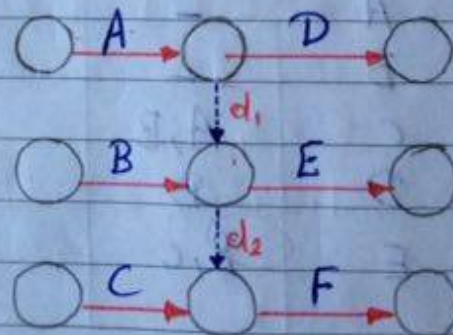 A D
d₁
B E
d₂
C F